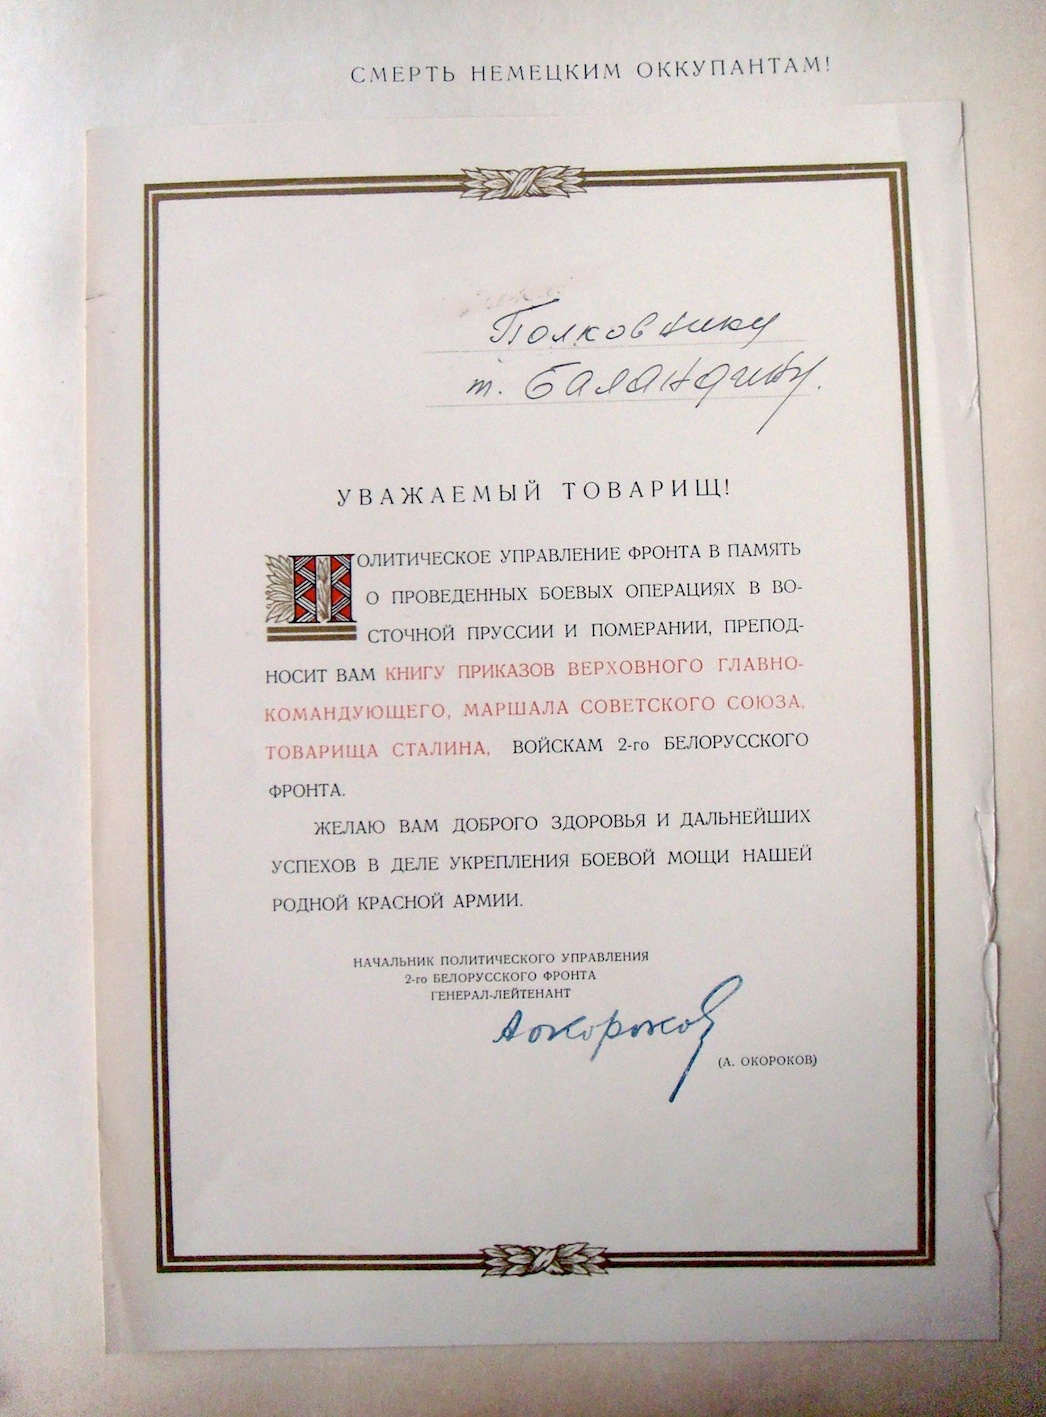 СМЕРТЬ НЕМЕЦКИМ ОККУПАНТАМ!
Полковнику
т. Баландину.
УВАЖАЕМЫЙ ТОВАРИЩ!
ПОЛИТИЧЕСКОЕ УПРАВЛЕНИЕ ФРОНТА В ПАМЯТЬ
О ПРОВЕДЕННЫХ БОЕВЫХ ОПЕРАЦИЯХ В ВО-
СТОЧНОЙ ПРУССИИ И ПОМЕРАНИИ, ПРЕПОД-
НОСИТ ВАМ КНИГУ ПРИКАЗОВ ВЕРХОВНОГО ГЛАВНО-
КОМАНДУЮЩЕГО, МАРШАЛА СОВЕТСКОГО СОЮЗА,
ТОВАРИЩА СТАЛИНА, ВОЙСКАМ 2-го БЕЛОРУССКОГО
ФРОНТА.
ЖЕЛАЮ ВАМ ДОБРОГО ЗДОРОВЬЯ И ДАЛЬНЕЙШИХ
УСПЕХОВ В ДЕЛЕ УКРЕПЛЕНИЯ БОЕВОЙ МОЩИ НАШЕЙ
РОДНОЙ КРАСНОЙ АРМИИ.
НАЧАЛЬНИК ПОЛИТИЧЕСКОГО УПРАВЛЕНИЯ
2-го БЕЛОРУССКОГО ФРОНТА
ГЕНЕРАЛ-ЛЕЙТЕНАНТ
Аокороков
(А. ОКОРОКОВ)